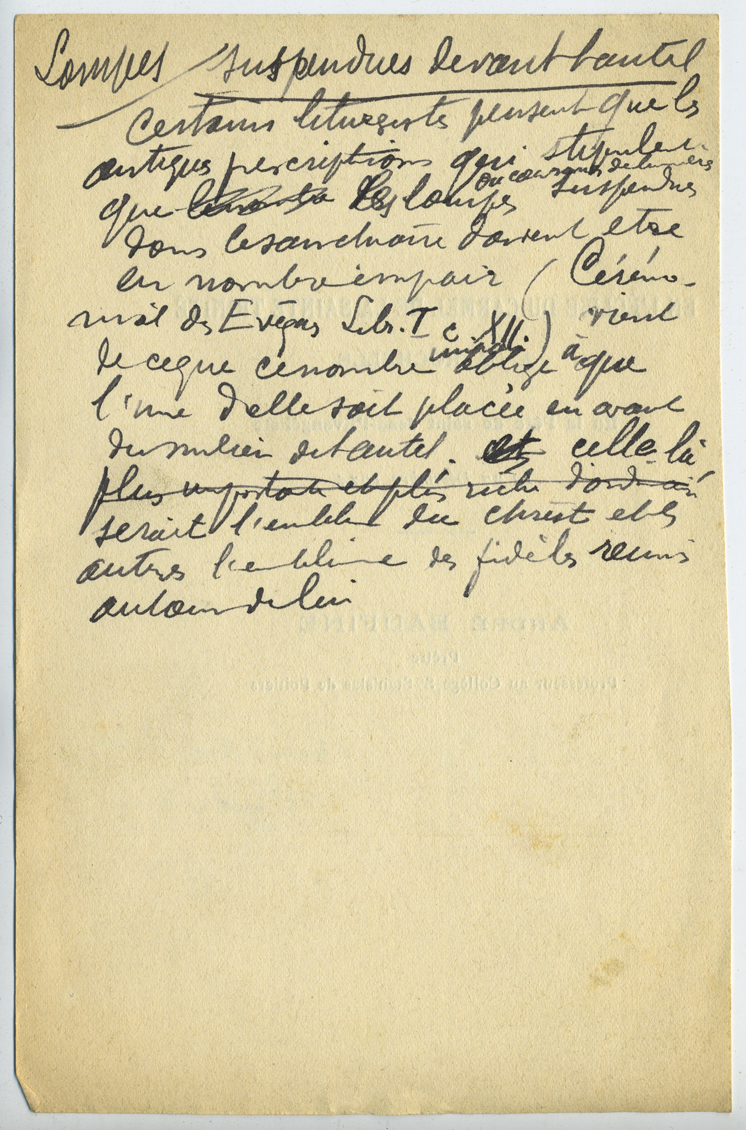 Lampes suspendues devant l'autel
Certains liturgistes pensent que les
antiques perscriptions qui stipulent
ou couronnes de lumières
que les lampes suspendues
dans le sanctuaire doivent etre
en nombre impair ( Cérémo-
nial des Evêques Lib. I c XII.) vient
de ce que ce nombre impair oblige à que
l'une d'elle soit placée en avant
du milieu de l'autel. et celle là
plus importante et plus riche
serait l'emblème du Christ et les
autres l'emblème des fidèles reunis
autour de lui
ANDRÉ
Prêtre
Professeur au Collège St Stanislas de Poitiers